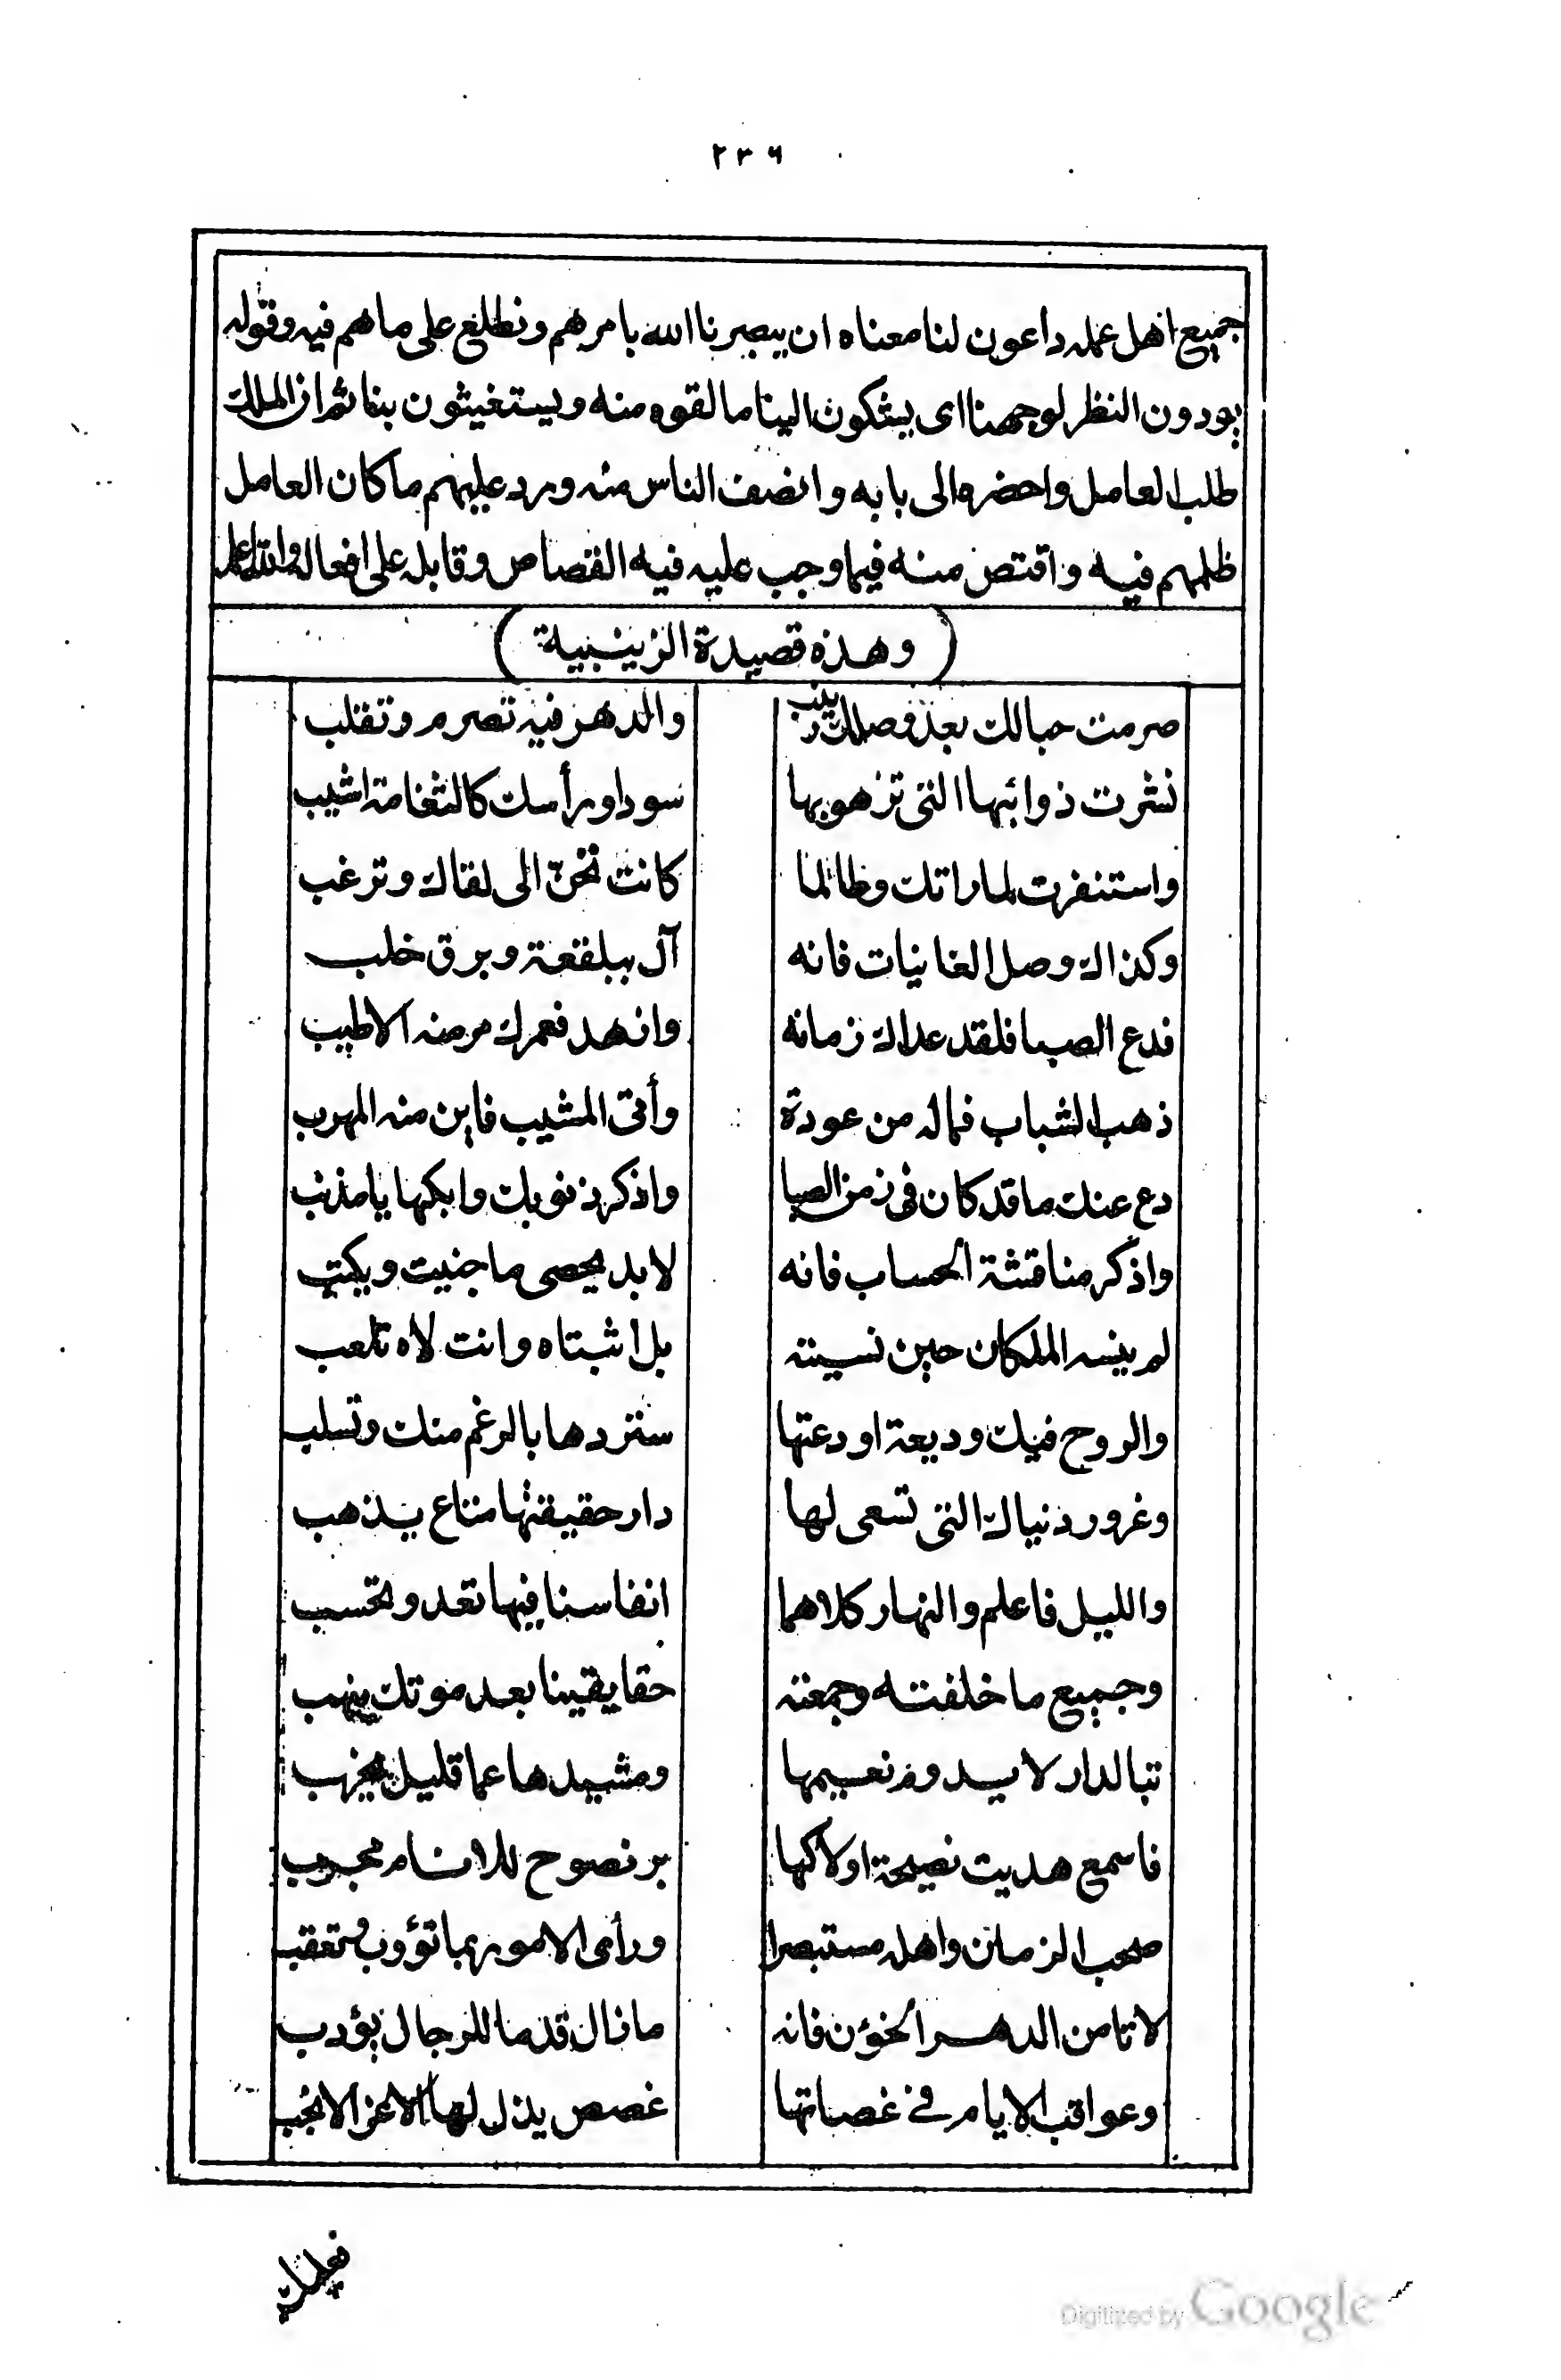 ٢٣٦
جميع اهل عمله داعون لنا معناه ان يبصرنا الله بامرهم ونطلع على ماهم فيه وقوله
يودون النظر لوجهنا اى يشكون الينا ما لقوه منه ويستغيثون بنا ثم ان الملك
طلب العامل واحضره الى بابه وانصف الناس منه ورد عليهم ما كان العامل
ظلمهم فيه واقتص منه فيما وجب عليه فيه القصاص وقابله على افعاله والله اعلم
(وهذه قصيدة الزينبية)
صرمت حبالك بعد وصلك زينب والدهر فيه تصرم وتقلب
نشرت ذوائبها التى تزهو بها سودا ورأسك كالثغامة اشيب
واستنفرت لما راتك وطالما كانت تحنّ الى لقاك وترغب
وكذاك وصل الغانيات فانه آل ببلقعة وبرق خلب
فدع الصبا فلقد عداك زمانه وازهد فعمرك مر منه الاطيب
ذهب الشباب فماله من عودة وأتى المشيب فاين منه المهرب
دع عنك ما قد كان فى زمن الصبا واذكر ذنوبك وابكها يا مذنب
واذكر مناقشة الحساب فانه لابد يحصى ما جنيت ويكتب
لم ينسه الملكان حين نسيته بل اثبتاه وانت لاه تلعب
والروح فيك وديعة اودعتها ستردها بالرغم منك وتسلب
وغرور دنياك التى تسعى لها دار حقيقتها متاع يذهب
والليل فاعلم والنهار كلاهما انفاسنا فيها تعد وتحسب
وجميع ما خلفته وجمعته حقا يقينا بعد موتك ينهب
تبا لدار لا يدوم نعيمها ومشيدها عما قليل يخرب
فاسمع هديت نصيحة اولاكها بر نصوح للانام مجرب
صحب الزمان واهله مستبصرا ورأى الامور بما تؤوب وتعقب
لا تامن الدهر الخؤن فانه مازال قدما للرجال يؤدب
وعواقب الايام فى غصاتها غصص يذل لها الاعز الانجب
فعليك
Digitized by Google